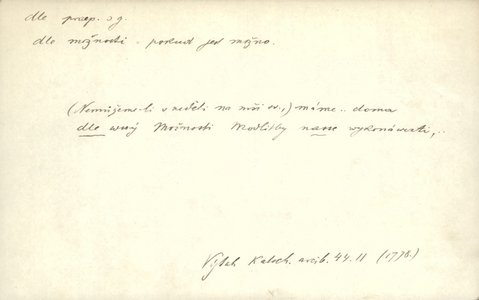 dle praep. s g.
dle možnosti - pokud jest možno.
(Nemůžeme-li v neděli na mši sv.,) máme .. doma
dle wssý Možnosti Modlitby nasse wykonáwati,..
Výtah Katech. arcib. 44. II (1778.)